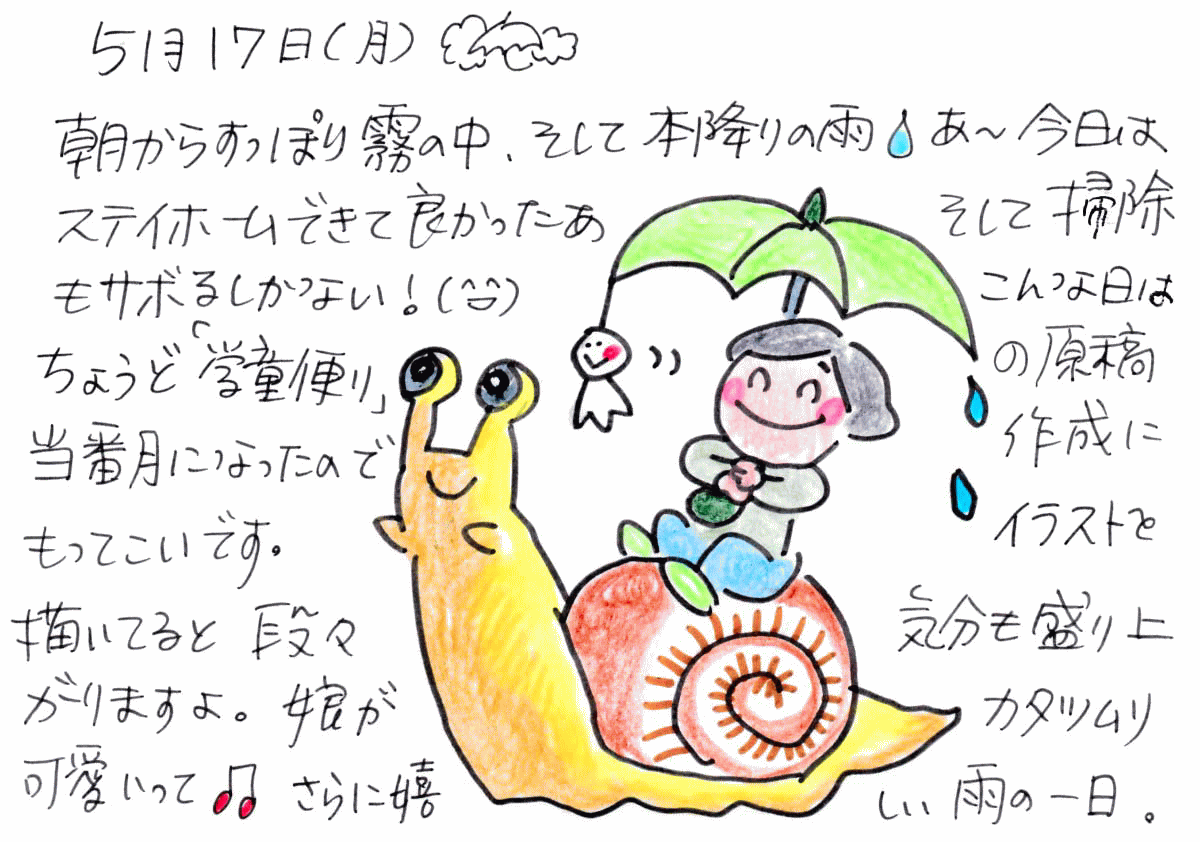 5月17日(月)
朝からすっぽり霧の中、そして本降りの雨 あ～今日は
ステイホームできて良かったあ そして掃除
もサボるしかない!(^^) こんな日は
ちょうど「学童便り」の原稿
当番月になったので 作成に
もってこいです。 イラストを
描いてると 段々 気分も盛り上
がりますよ。娘が カタツムリ
可愛いって♫ さらに嬉しい 雨の一日。